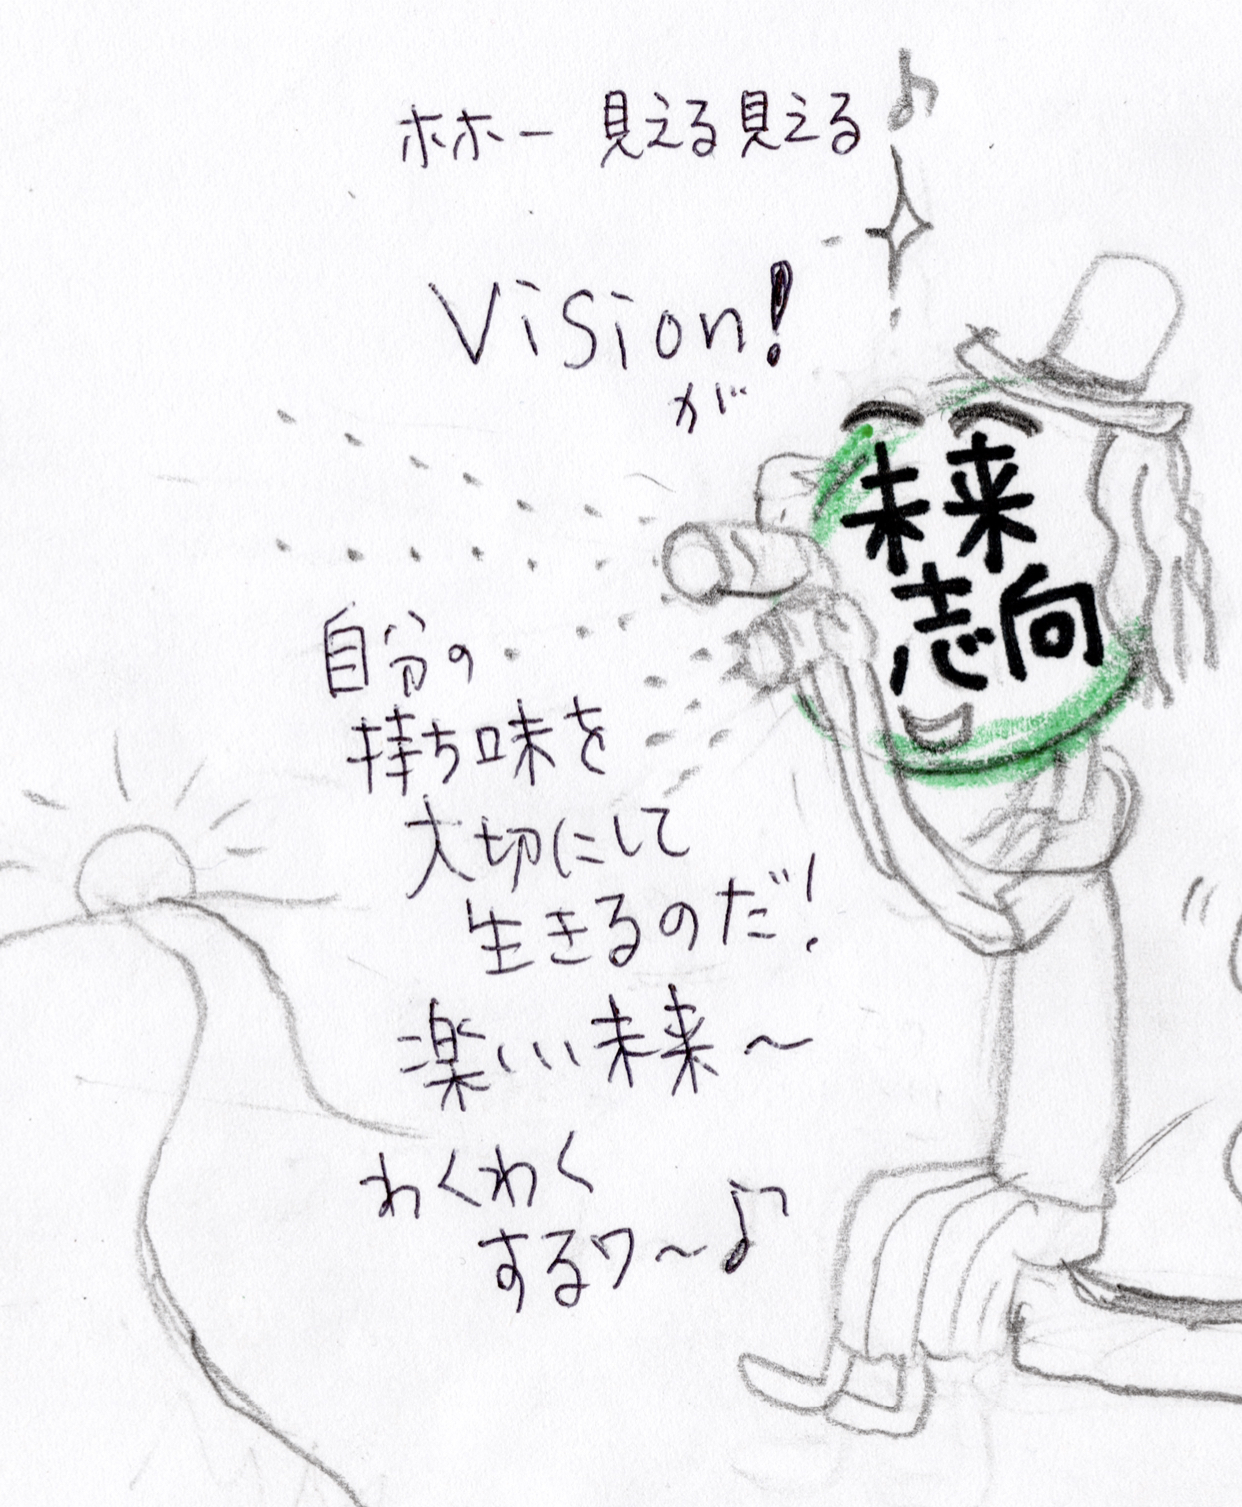 ホホー 見える見える♪
Vision!
が
未来
志向
自分の
持ち味を
大切にして
生きるのだ!
楽しい未来〜
わくわく
するワ〜♪